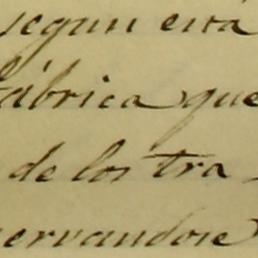 segun está
fábrica que
de los tra
servandose